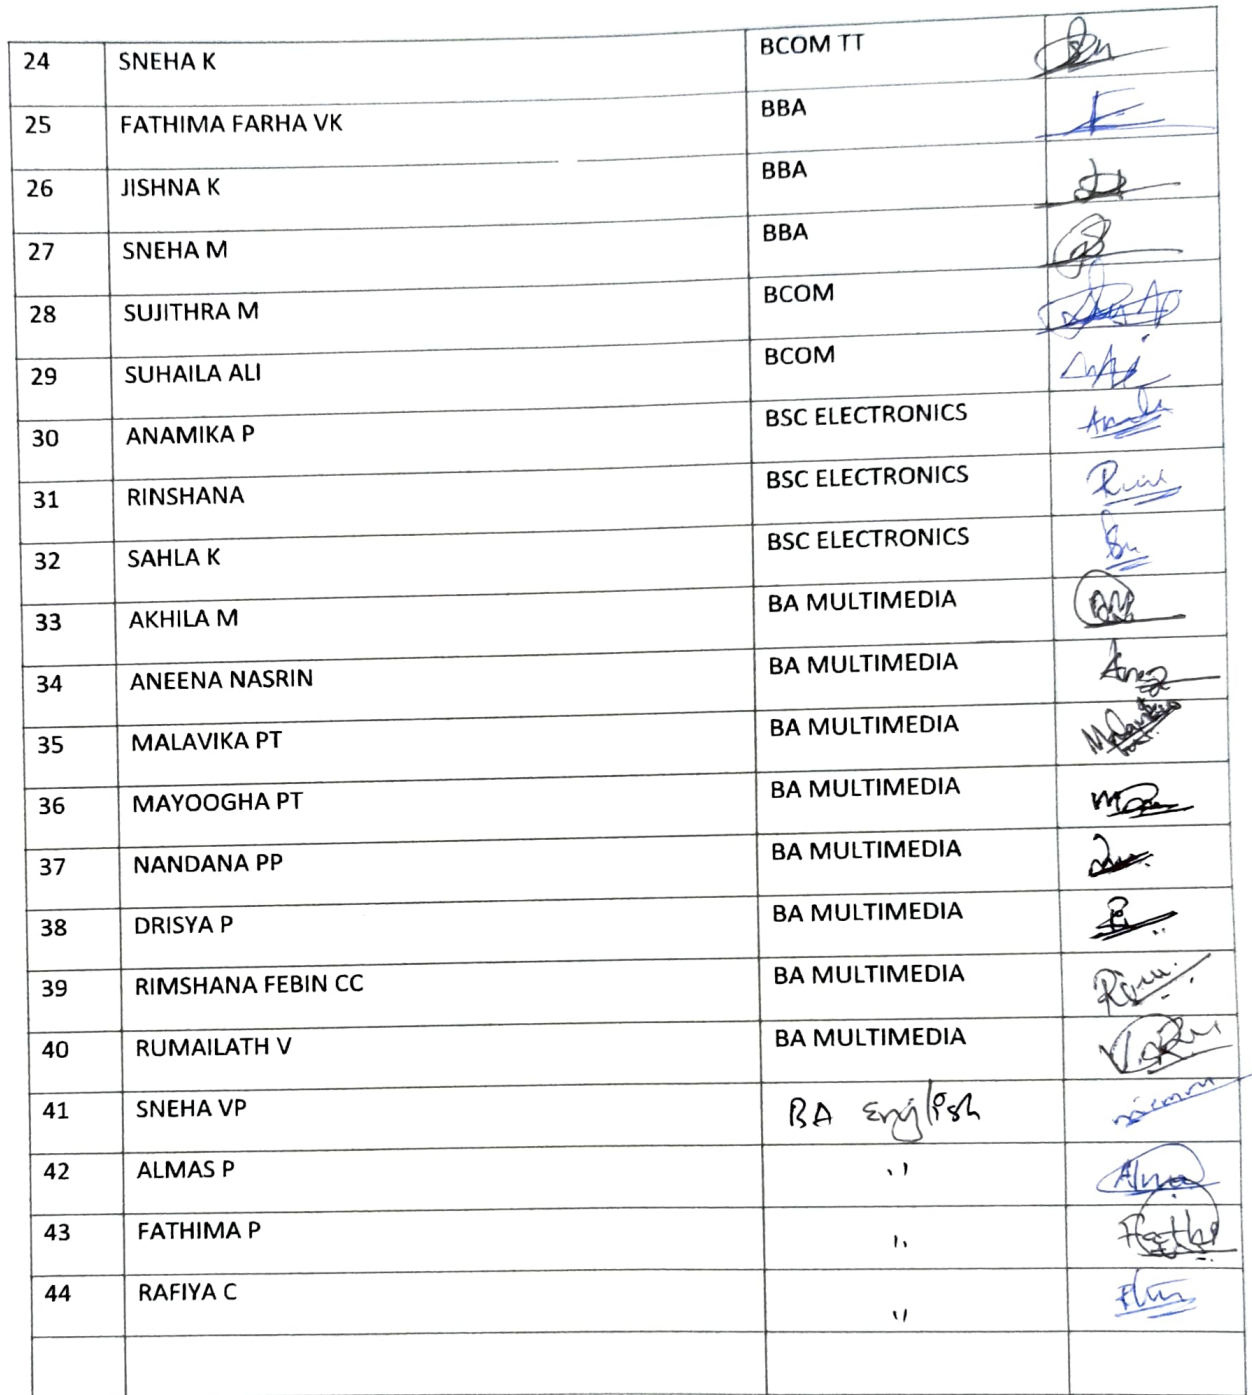 24 SNEHA K BCOM TT
25 FATHIMA FARHA VK BBA
26 JISHNA K BBA
27 SNEHA M BBA
28 SUJITHRA M BCOM
29 SUHAILA ALI BCOM
30 ANAMIKA P BSC ELECTRONICS
31 RINSHANA BSC ELECTRONICS
32 SAHLA K BSC ELECTRONICS
33 AKHILA M BA MULTIMEDIA
34 ANEENA NASRIN BA MULTIMEDIA
35 MALAVIKA PT BA MULTIMEDIA Malavika
36 MAYOOGHA PT BA MULTIMEDIA
37 NANDANA PP BA MULTIMEDIA
38 DRISYA P BA MULTIMEDIA
39 RIMSHANA FEBIN CC BA MULTIMEDIA
40 RUMAILATH V BA MULTIMEDIA
41 SNEHA VP BA English
42 ALMAS P "
43 FATHIMA P "
44 RAFIYA C "